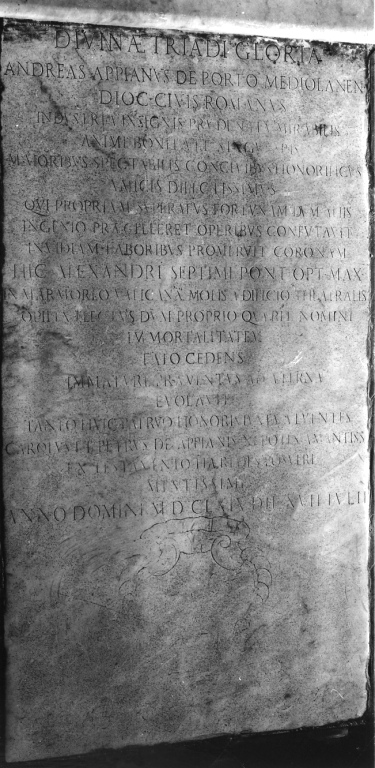 DIVINÆ TRIADI GLORIA
ANDREAS APPIANVS DE PORTO MEDIOLANEN
DIOC·CIVIS ROMANVS
INDVSTRIA INSIGNIS PRVDENTIA MIRABILIS
ANIMI BONITATE
MAIORIBVS SPECTABILIS CONCIVIBVS HONORIFICVS
AMICIS DILECTISSIMVS
QVI PROPRIAM SVPERATVS FORTVNAM DVM ALIIS
INGENIO PRÆCELLERET OPERIBVS CONFVTAVIT
INVIDIAM LABORIBVS PROMERVIT CORONAM
HIC ALEXANDRI SEPTIMI PONT OPT MAX
IN MARMOREO VATICANÆ MOLIS ÆDIFICIO THEATRALIS
DVM PROPRIO QVÆRIT NOMINI
IMMORTALITATEM
FATO CEDENS
IMMATVRE
EVOLAVIT
TANTO
CAROLVS ET PETRVS DE APPIANIS NEPOTES AMANTISS
EX TESTAMENTO HÆREDES POSVERE
MESTISSIMI
ANNO DOMINI M D C DIE XVII IVLII